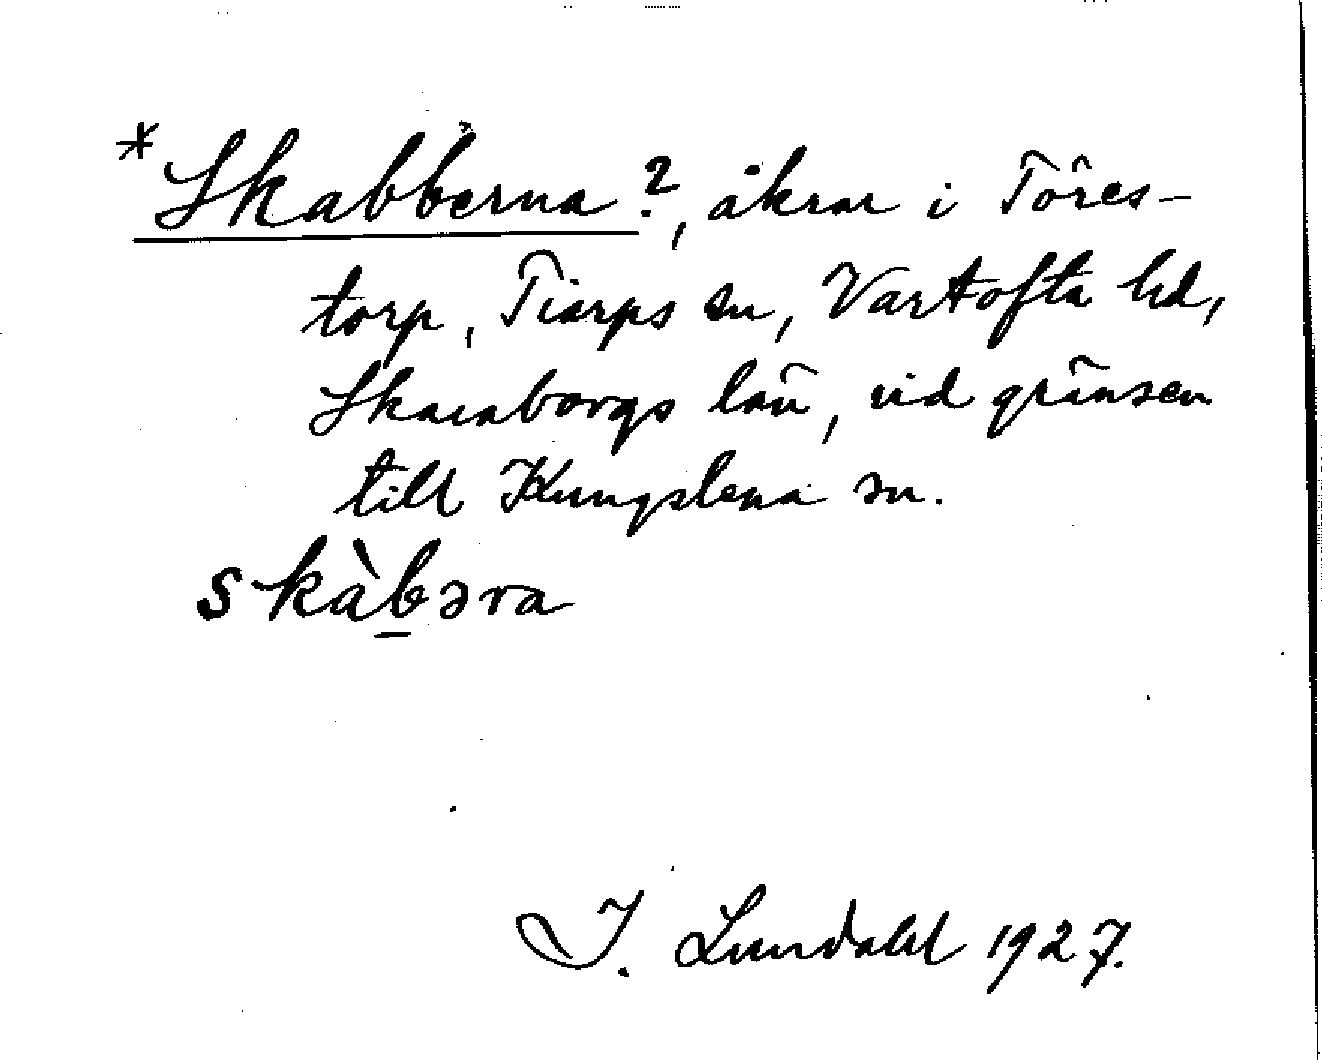 *Skabberna?, åkrar i Töres-
torp, Tiarps sn, Vartofta hd,
Skaraborgs län, vid gränsen
till Kungslena sn.
skàbəra
I. Lundahl 1927.